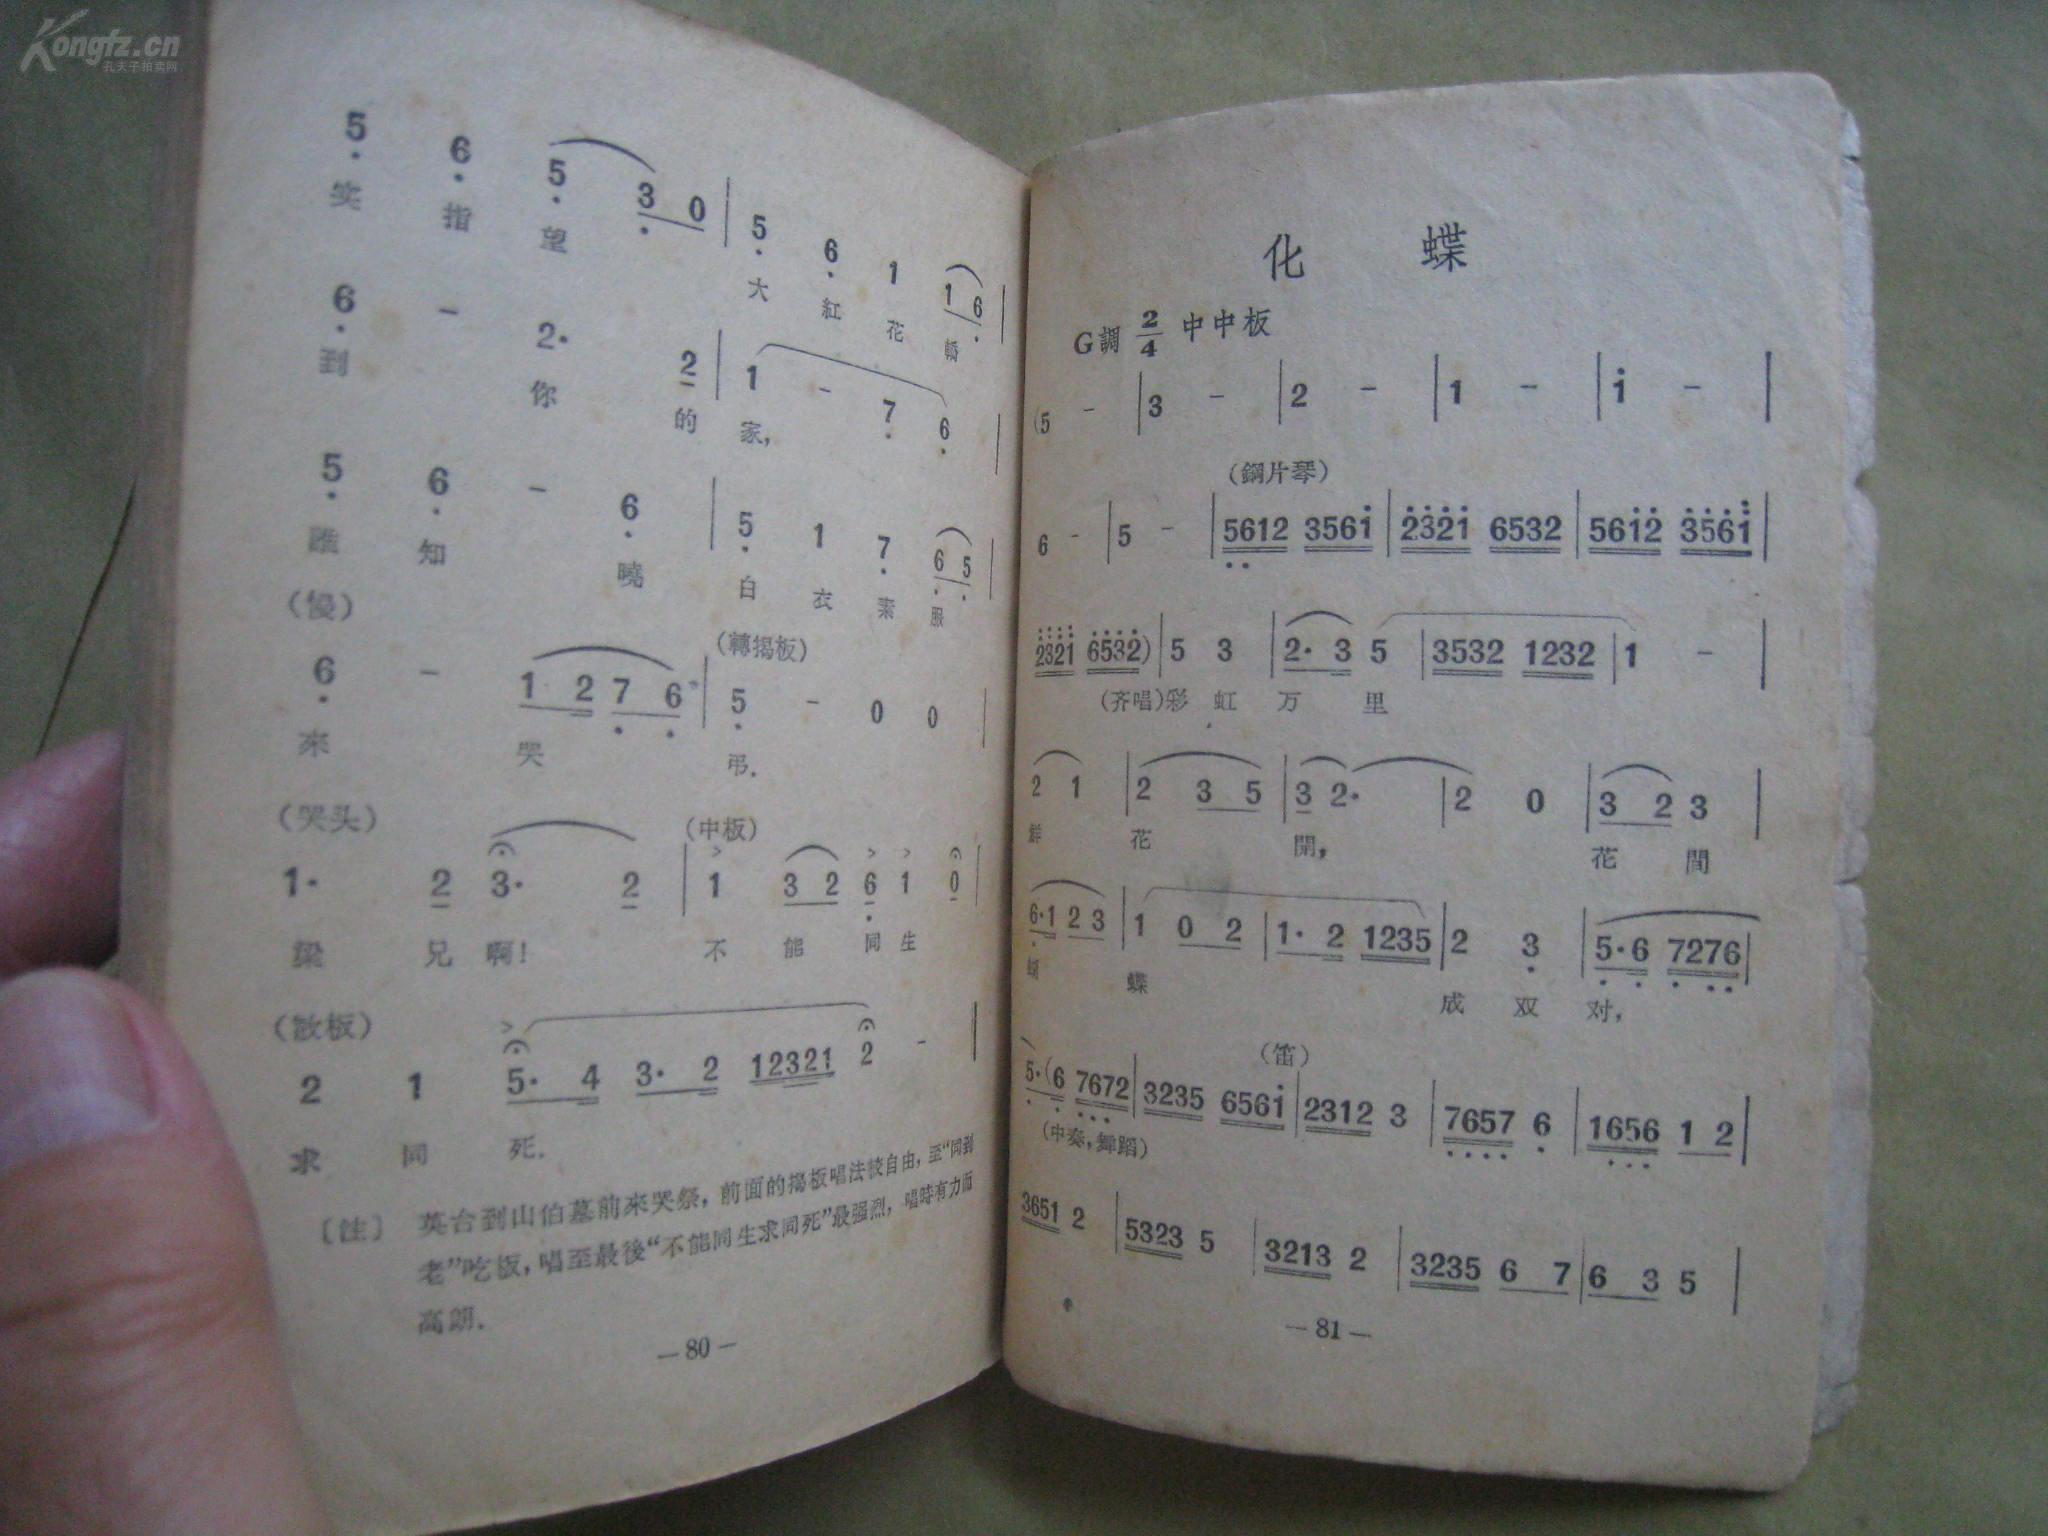 Kongfz.cn
孔夫子拍卖网
5 6 5 3 0 | 5 6 1 1 6 |
实 指 望 大 紅 花 轎
6 - 2· 2 | 1 - 7 6 |
到 你 的 家,
5 6 - 6 | 5 1 7 6 5 |
誰 知 曉 白 衣 素 服
(慢) (轉搗板)
6 - 1 2 7 6 | 5 - 0 0 |
來 哭 弔.
(哭头) (中板)
1· 2 3· 2 | 1 3 2 6 1 0 |
梁 兄 啊! 不 能 同 生
(散板)
2 1 5· 4 3· 2 12321 2 - |
求 同 死.
〔註〕 英台到山伯墓前來哭祭, 前面的搗板唱法較自由, 至“同到
老”吃板, 唱至最後“不能同生求同死”最强烈, 唱時有力而
高朗.
—80—
化 蝶
G調 2/4 中中板
(5 - | 3 - | 2 - | 1 - | i - |
(鋼片琴)
6 - | 5 - | 5612 3561 | 2321 6532 | 5612 3561 |
2321 6532) | 5 3 | 2· 3 5 | 3532 1232 | 1 - |
(齐唱)彩 虹 万 里
2 1 | 2 3 5 | 3 2· | 2 0 | 3 2 3 |
鮮 花 開, 花 間
6·1 2 3 | 1 0 2 | 1· 2 1235 | 2 3 | 5·6 7276 |
蝴 蝶 成 双 对,
(笛)
5·(6 7672 | 3235 6561 | 2312 3 | 7657 6 | 1656 1 2 |
(中奏, 舞蹈)
3651 2 | 5323 5 | 3213 2 | 3235 6 7 | 6 3 5 |
—81—